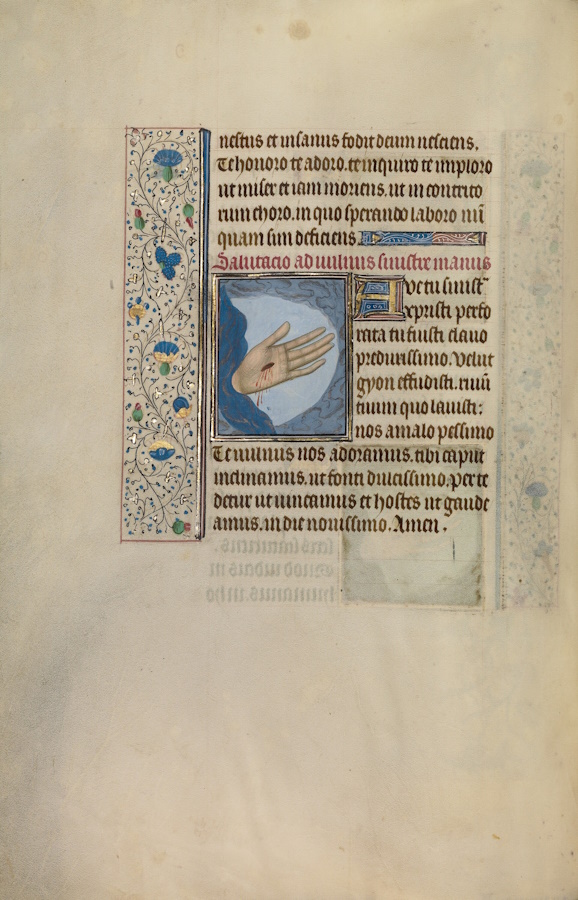 nestus et insanus fodit deum nesciens.
Te honoro te adoro. te inquiro te imploro
ut miser et iam moriens. ut in contrito
rum choro. in quo sperando laboro nū
quam sim deficiens
Salutacio ad vulnus sinistre manus
Ave tu sinistra
xpristi perfo
rata tu fuisti clavo
predurissimo. Velut
gyon effudisti. rivū
tuum quo lavisti:
nos a malo pessimo
Te vulnus nos adoramus. tibi caput
inclinamus. ut fonti dulcissimo. per te
detur ut vincamus et hostes ut gaude
amus. in die novissimo. Amen.